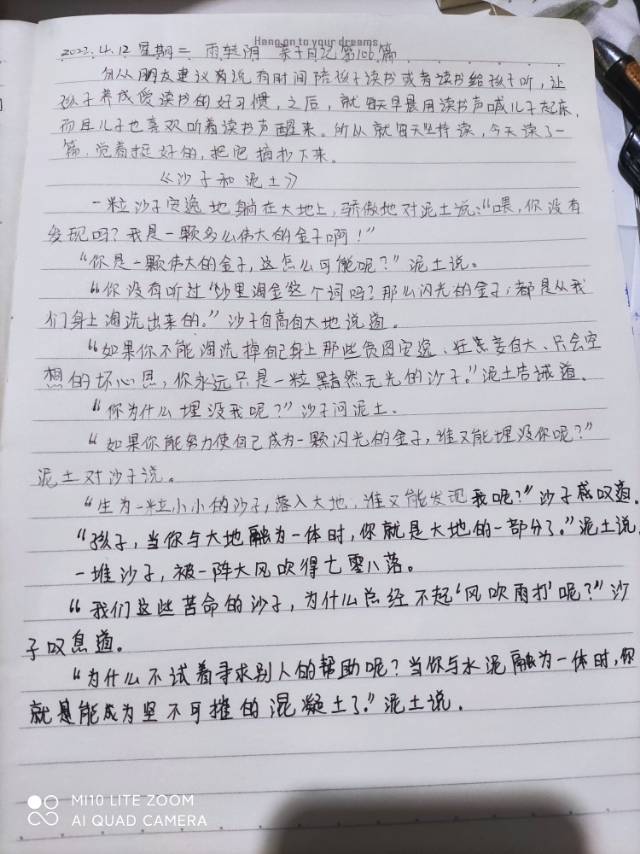 Hang on to your dreams
2022.4.12 星期二 雨转阴 亲子日记第106篇
自从朋友建议我说有时间陪孩子读书或者读书给孩子听，让
孩子养成爱读书的好习惯，之后，就每天早晨用读书声喊儿子起床，
而且儿子也喜欢听着读书声醒来。所以就每天坚持读，今天读了一
篇，觉着挺好的，把它摘抄下来。
《沙子和泥土》
一粒沙子安逸地躺在大地上，骄傲地对泥土说："喂，你没有
发现吗？我是一颗多么伟大的金子啊！"
"你是一颗伟大的金子，这怎么可能呢？"泥土说。
"你没有听过'沙里淘金'这个词吗？那么闪光的金子，都是从我
们身上淘洗出来的。"沙子自高自大地说道。
"如果你不能淘洗掉自己身上那些贪图安逸、狂妄自大、只会空
想的坏心思，你永远只是一粒黯然无光的沙子。"泥土告诫道。
"你为什么埋没我呢？"沙子问泥土．
"如果你能努力使自己成为一颗闪光的金子，谁又能埋没你呢？"
泥土对沙子说。
"生为一粒小小的沙子，落入大地，谁又能发现我呢？"沙子感叹道．
"孩子，当你与大地融为一体时，你就是大地的一部分了。"泥土说．
一堆沙子，被一阵大风吹得七零八落。
"我们这些苦命的沙子，为什么总经不起'风吹雨打'呢？"沙
子叹息道。
"为什么不试着寻求别人的帮助呢？当你与水泥融为一体时，你
就是能成为坚不可摧的混凝土了。"泥土说．
MI10 LITE ZOOM
AI QUAD CAMERA